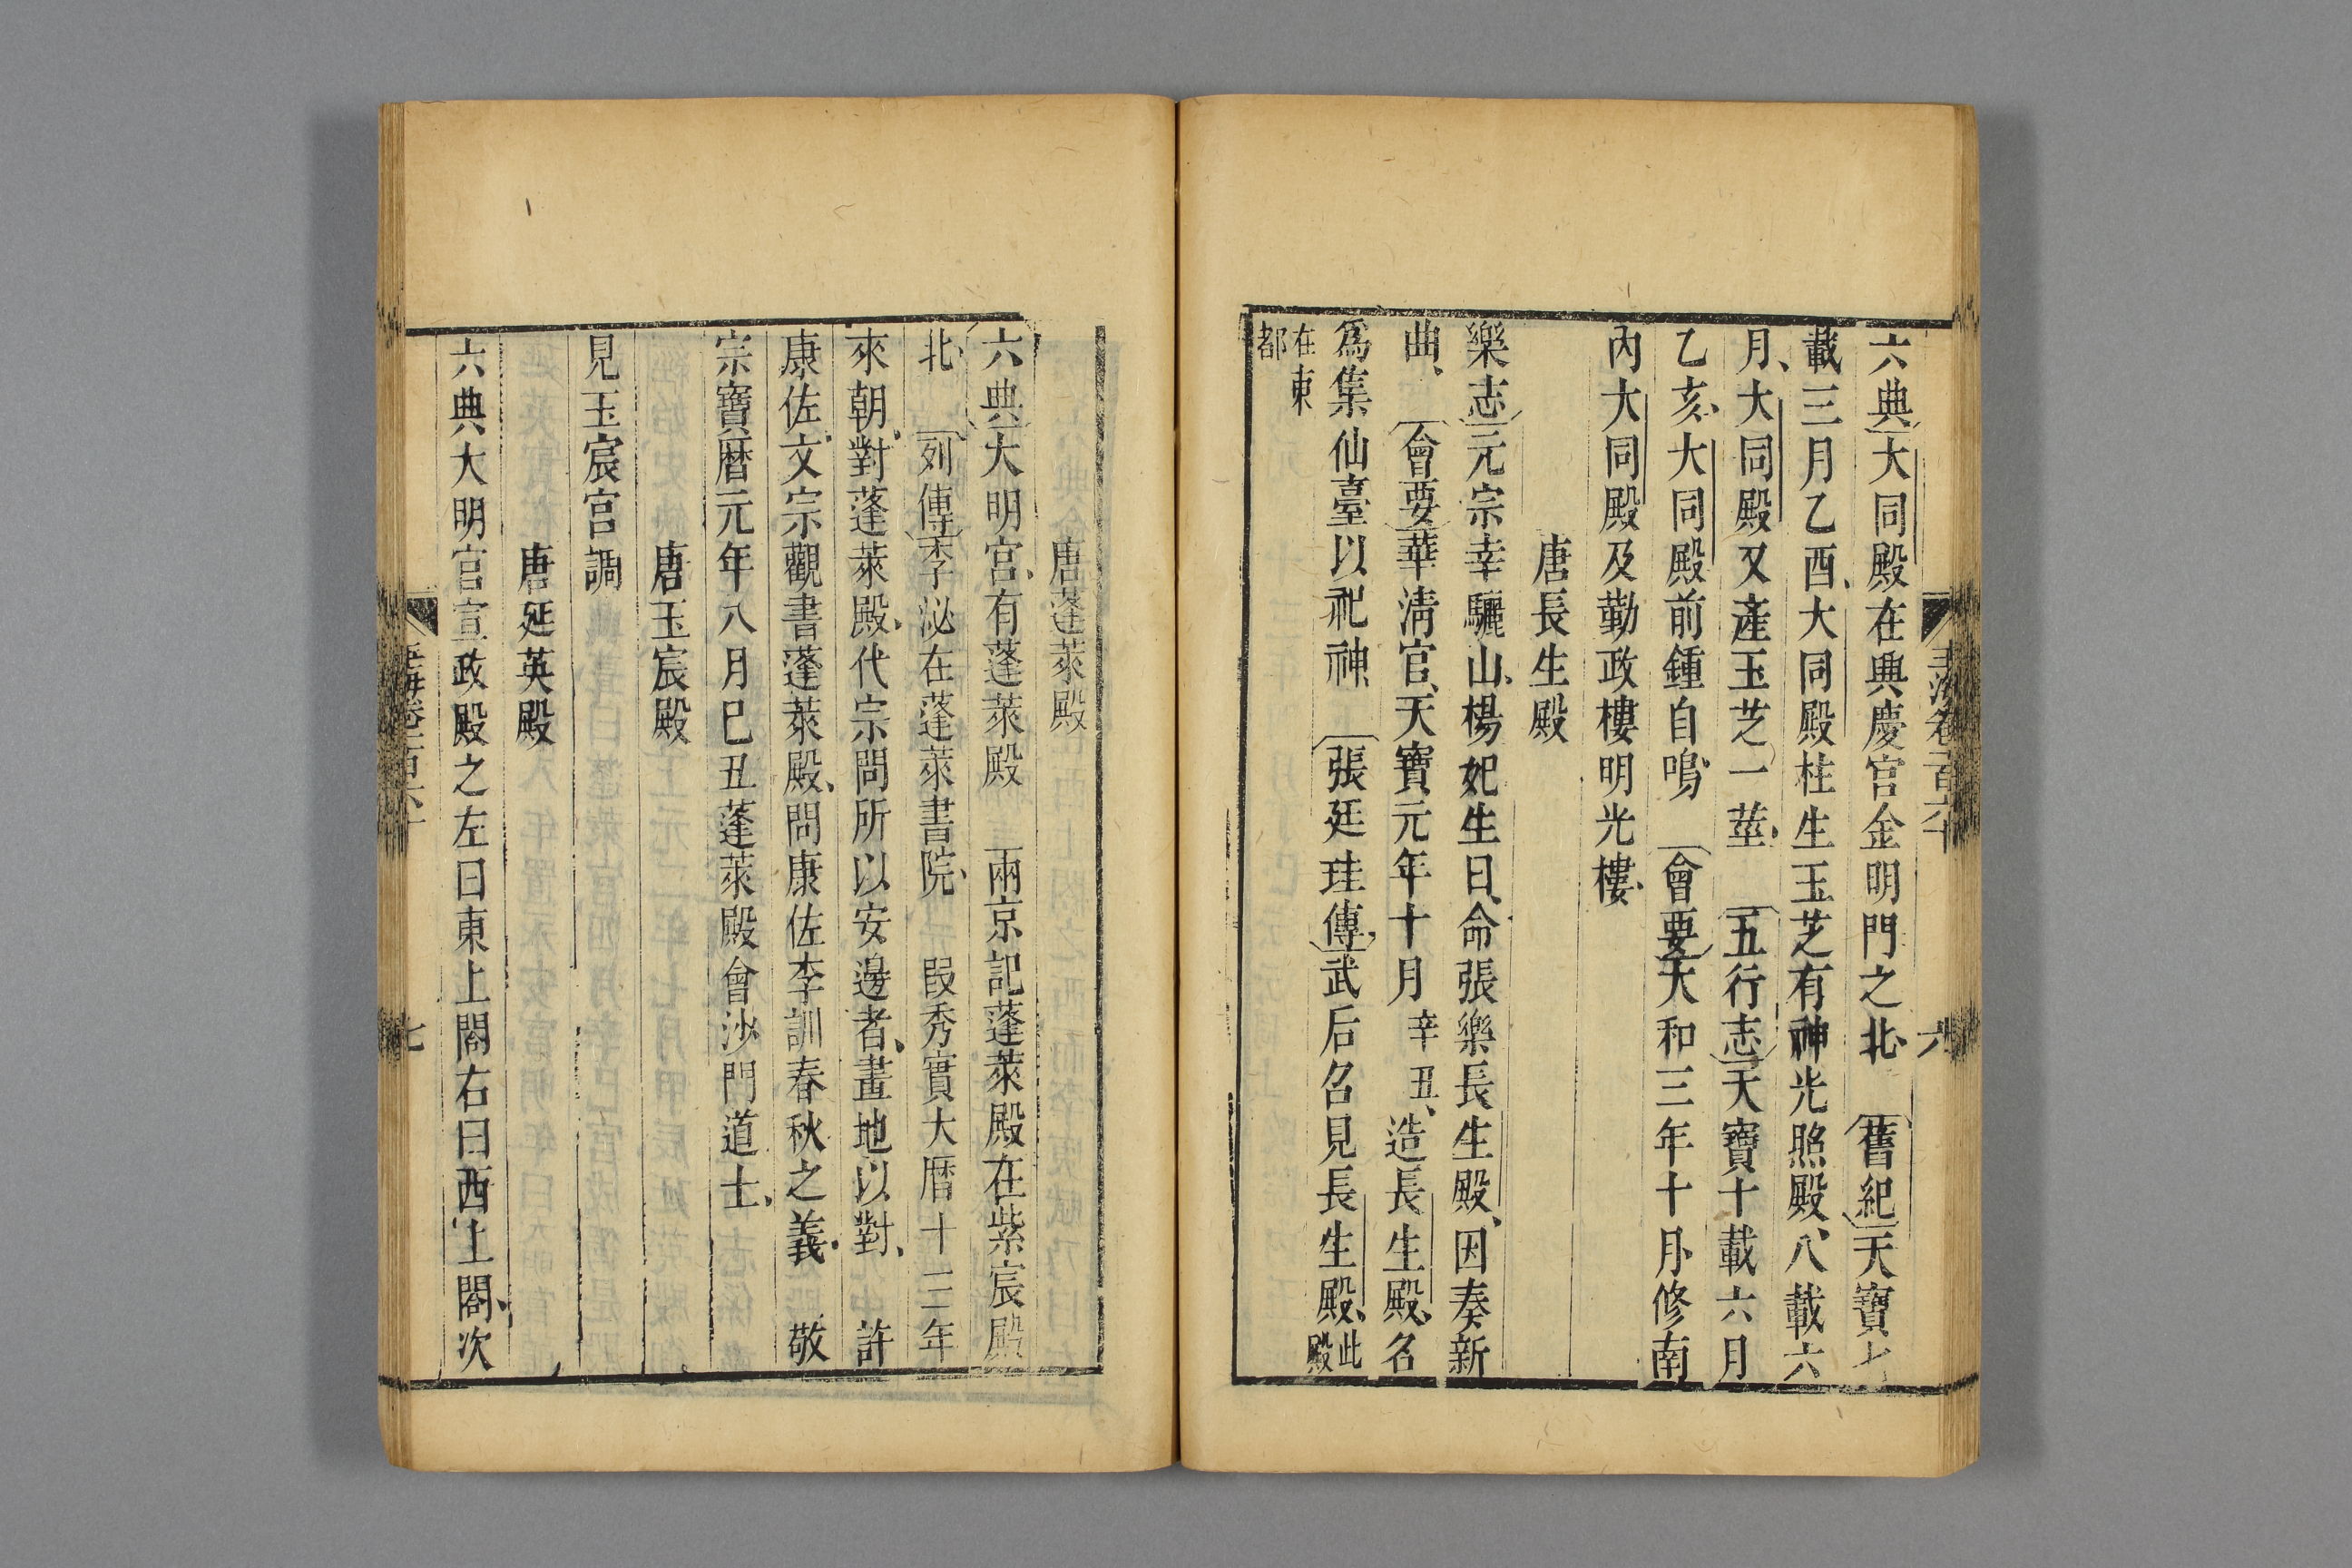 玉海卷一百六十 六
六典大同殿在興慶宮金明門之北舊紀天寶七
載三月乙酉大同殿柱生玉芝有神光照殿八載六
月大同殿又產玉芝一莖五行志天寶十載六月
乙亥大同殿前鍾自鳴會要大和三年十月修南
內大同殿及勤政樓明光樓
唐長生殿
樂志元宗幸驪山楊妃生日命張樂長生殿因奏新
曲會要華清宮天寶元年十月辛丑造長生殿名
為集仙臺以祀神張廷珪傳武后召見長生殿此殿
在東都
唐蓬萊殿
六典大明宮有蓬萊殿兩京記蓬萊殿在紫宸殿
北列傳李泌在蓬萊書院段秀實大曆十三年
來朝對蓬萊殿代宗問所以安邊者畫地以對許
康佐文宗觀書蓬萊殿問康佐李訓春秋之義敬
宗寶曆元年八月巳丑蓬萊殿會沙門道士
唐玉宸殿
見玉宸宮調
唐延英殿
六典大明宮宣政殿之左曰東上閤右曰西上閤次
玉海卷一百六十 七